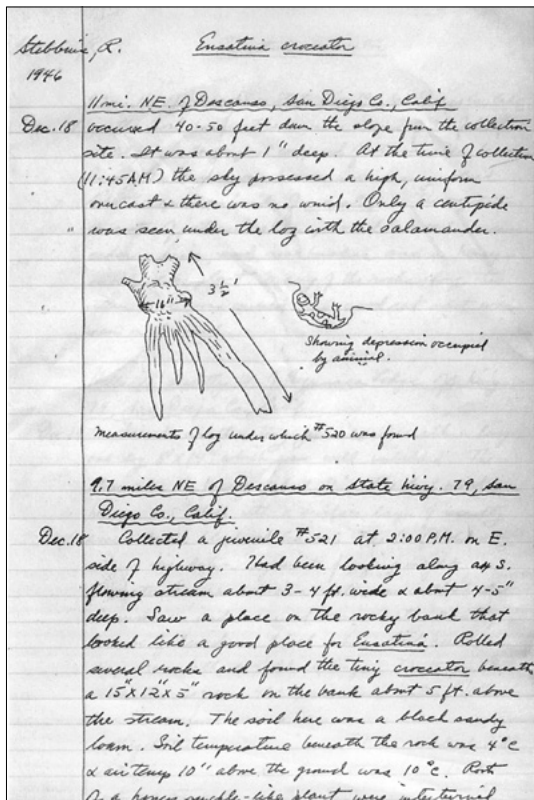 Stebbins, R.
Ensatina croceator
1946
11 mi. NE. of Descanso, San Diego Co., Calif
Dec. 18 occurred 40-50 feet down the slope from the collection
site. It was about 1" deep. At the time of collection
(11:45 A.M.) the sky possessed a high, uniform
overcast & there was no wind. Only a centipede
was seen under the log with the salamander.
3 1/2'
16"
Showing depression occupied
by animal.
Measurements of log under which #520 was found
9.7 miles NE of Descanso on State hiwy. 79, San
Diego Co., Calif.
Dec. 18 Collected a juvenile #521 at 2:00 P.M. on E.
side of highway. Had been looking along a S.
flowing stream about 3-4 ft. wide & about 4-5"
deep. Saw a place on the rocky bank that
looked like a good place for Ensatina. Rolled
several rocks and found the tiny croceator beneath
a 15"x12"x5" rock on the bank about 5 ft. above
the stream. The soil here was a black sandy
loam. Soil temperature beneath the rock was 4°C
& air temp 10" above the ground was 10°C. Roots
of a honey suckle-like plant were